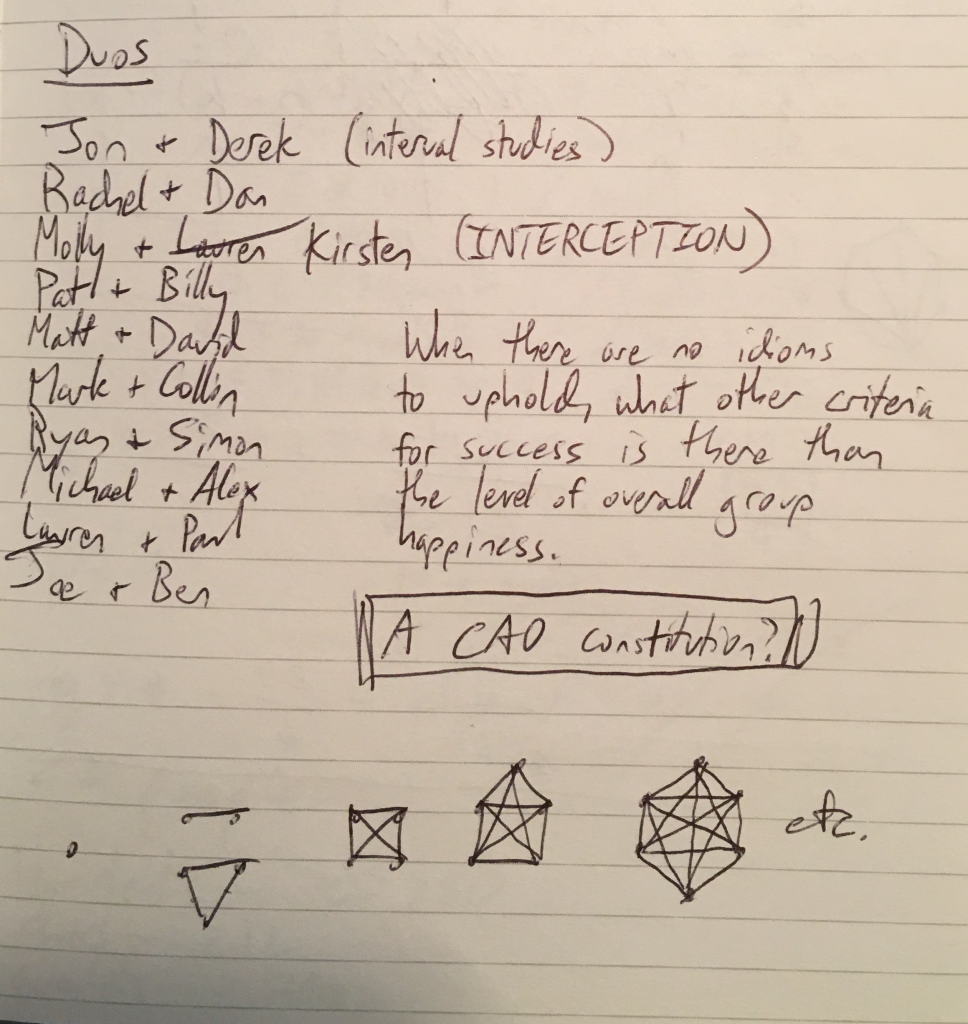 Duos
Jon + Derek (interval studies)
Rachel + Dan
Molly + Lauren Kirsten (INTERCEPTION)
+ Billy
Matt + David
Mark + Collin
Ryan + Simon
Michael + Alex
Lauren + Paul
Joe + Ben
When there are no idioms
to uphold, what other criteria
for success is there than
the level of overall group
happiness.
A CAO constitution?
etc.